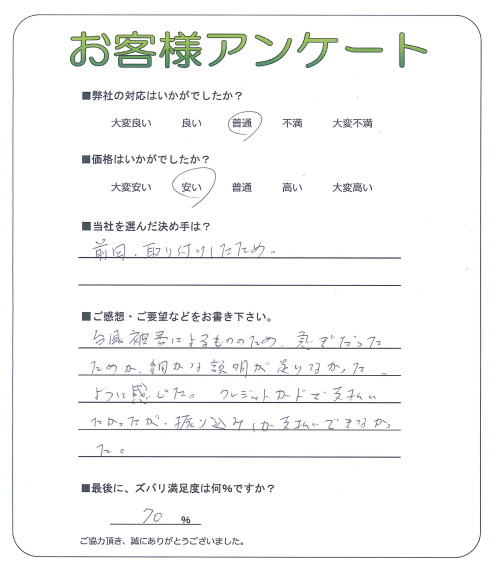 お客様アンケート
■弊社の対応はいかがでしたか？
大変良い 良い 普通 不満 大変不満
■価格はいかがでしたか？
大変安い 安い 普通 高い 大変高い
■当社を選んだ決め手は？
前回、取り付けしたため。
■ご感想・ご要望などをお書き下さい。
台風被害によるもののため、急ぎだった
ためか、細かな説明が足りなかった
ように感じた。クレジットカードで支払い
たかったが、振り込みしか支払いできなかっ
た。
■最後に、ズバリ満足度は何%ですか？
70 %
ご協力頂き、誠にありがとうございました。